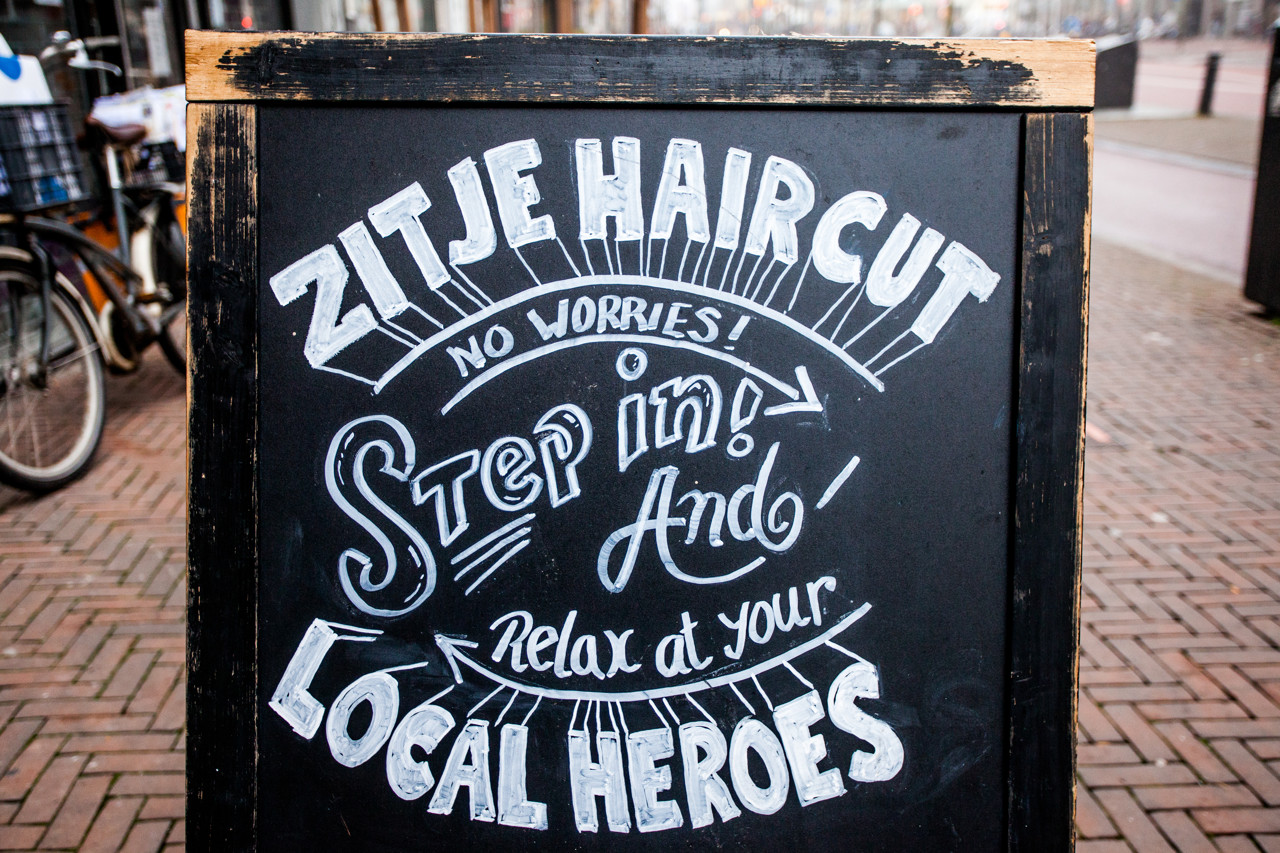 ZITJE HAIRCUT
NO WORRIES!
Step in!
And
Relax at your
LOCAL HEROES